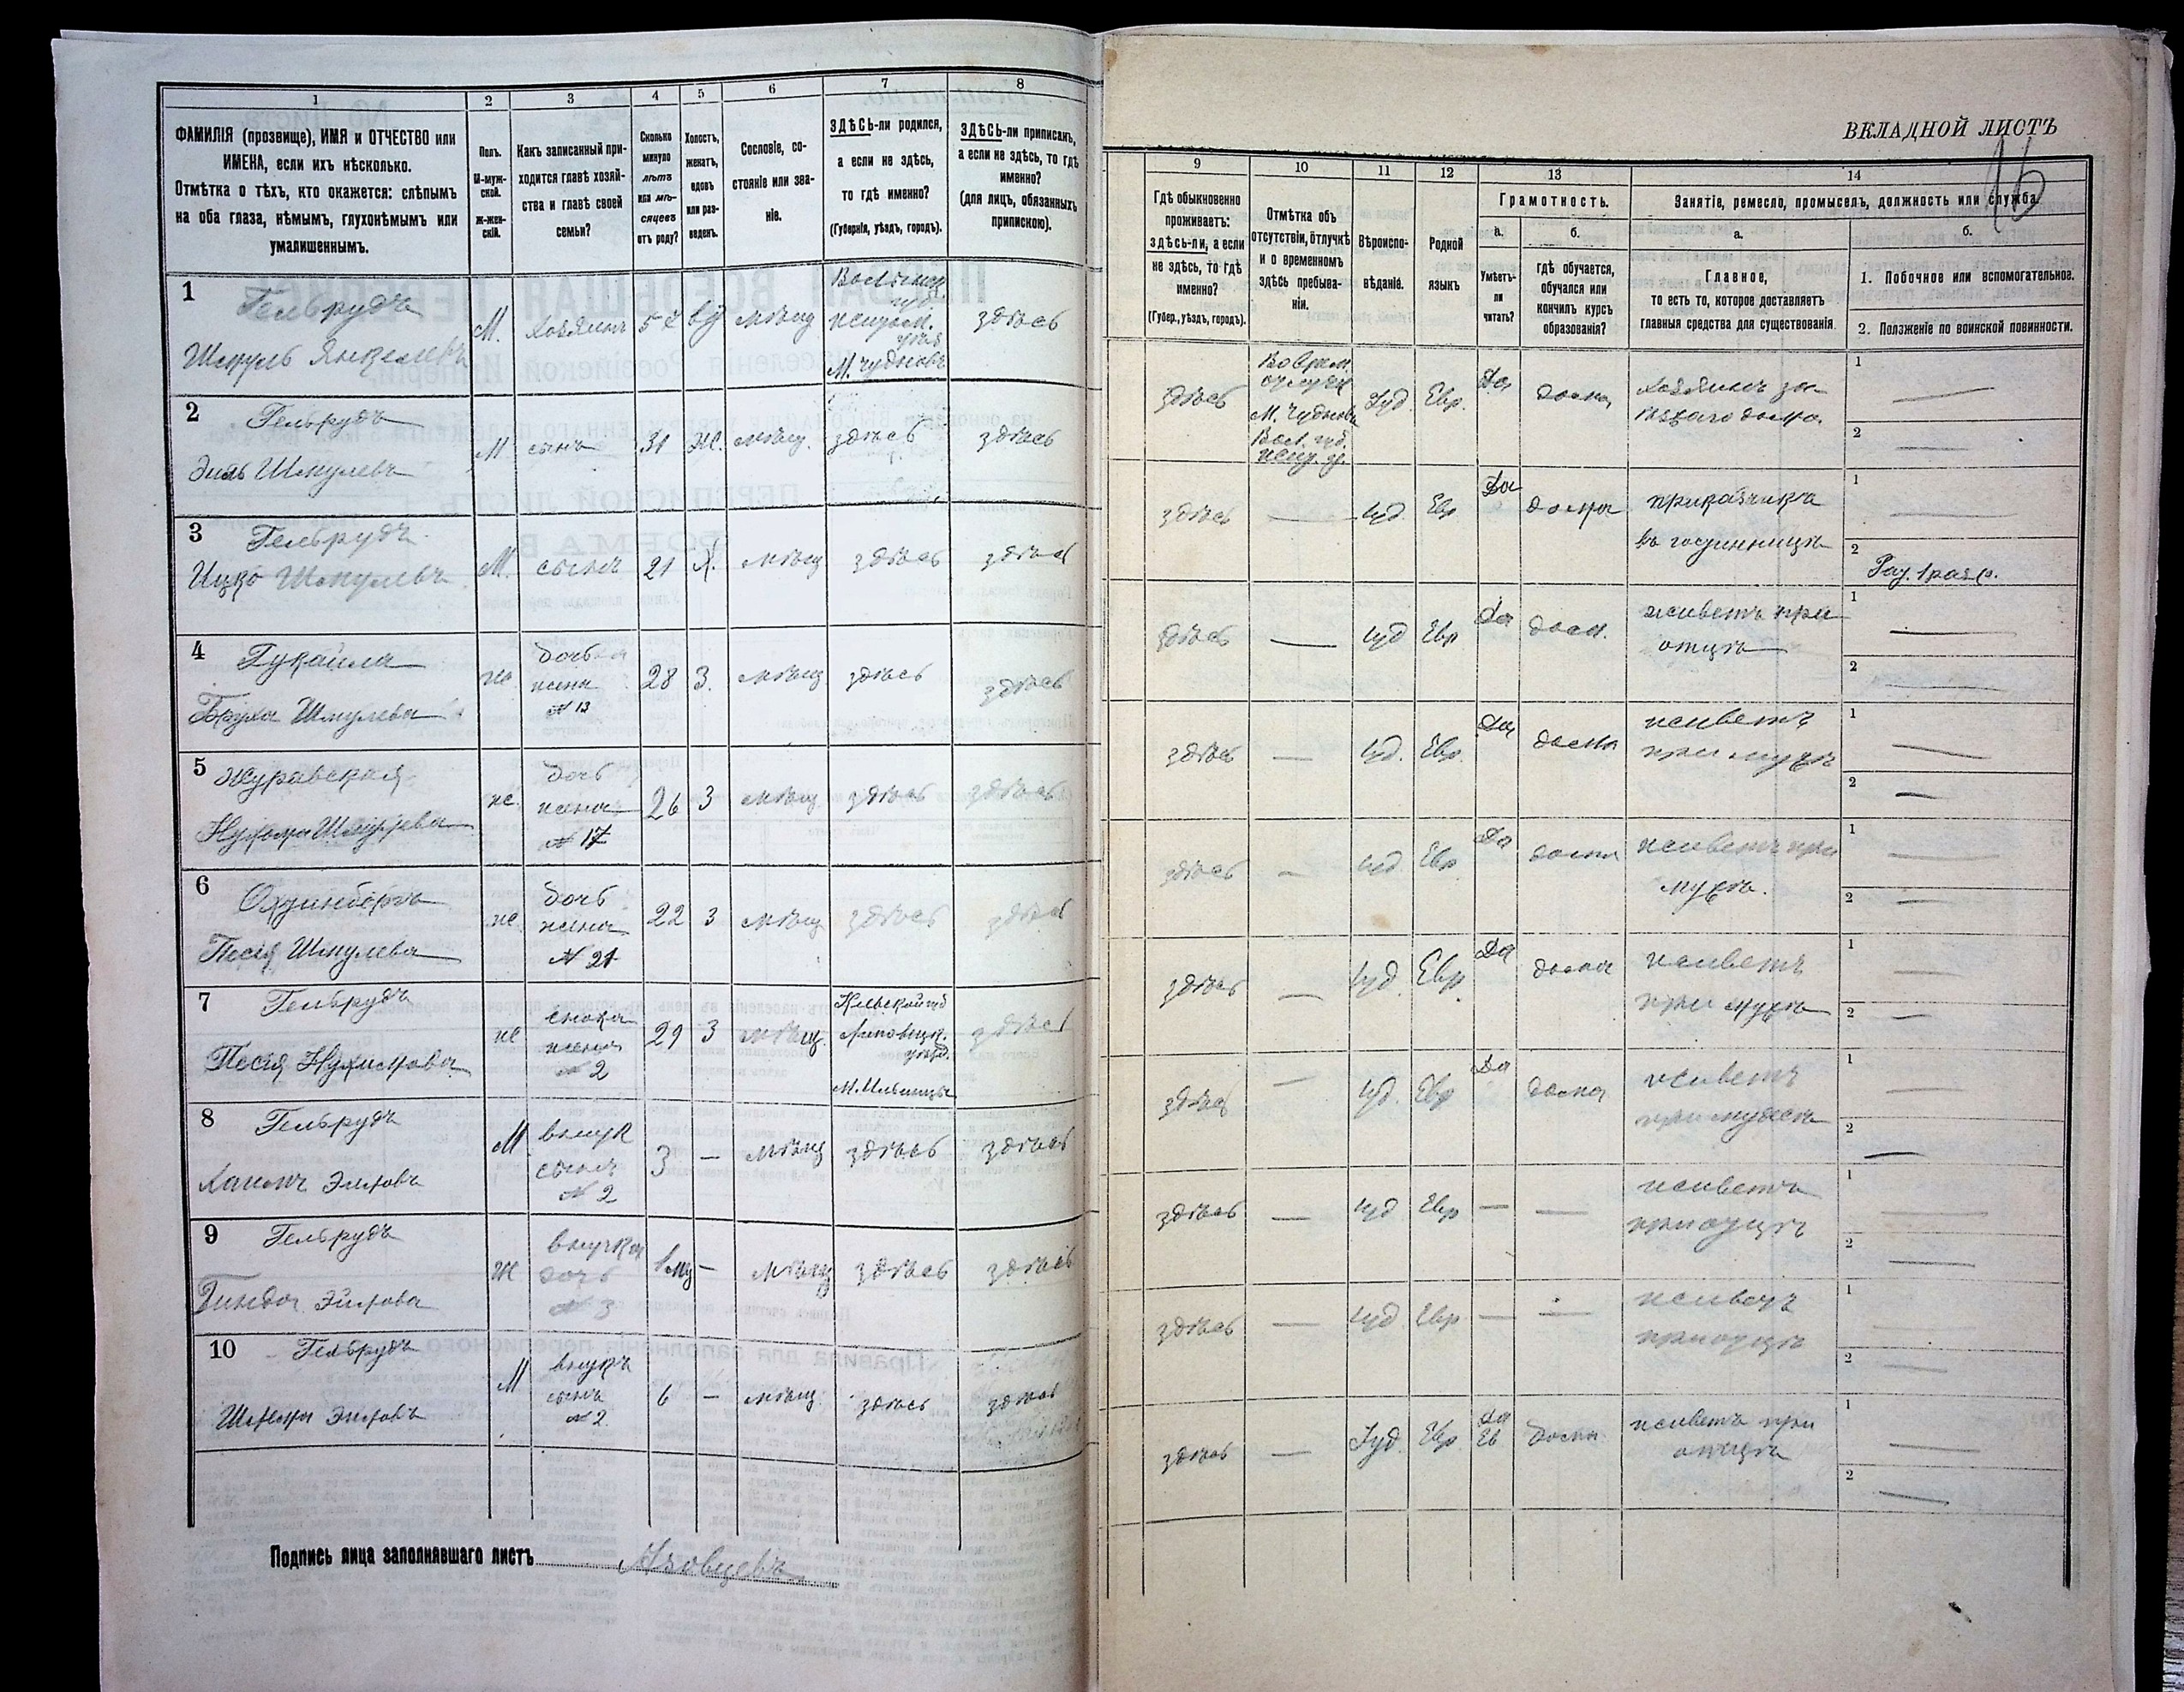 ВКЛАДНОЙ ЛИСТЪ
16
1
2
3
4
5
6
7
8
9
10
11
12
13
14
ФАМИЛІЯ (прозвище), ИМЯ и ОТЧЕСТВО или
ИМЕНА, если ихъ нѣсколько.
Отмѣтка о тѣхъ, кто окажется: слѣпымъ
на оба глаза, нѣмымъ, глухонѣмымъ или
умалишеннымъ.
Полъ.
М-муж-
ской.
Ж-жен-
скій.
Какъ записанный при-
ходится главѣ хозяй-
ства и главѣ своей
семьи?
Сколько
минуло
лѣтъ
или мѣ-
сяцевъ
отъ роду?
Холостъ,
женатъ,
вдовъ
или раз-
веденъ.
Сословіе, со-
стояніе или зва-
ніе.
ЗДѢСЬ-ли родился,
а если не здѣсь,
то гдѣ именно?
(Губернія, уѣздъ, городъ).
ЗДѢСЬ-ли приписанъ,
а если не здѣсь, то гдѣ
именно?
(для лицъ, обязанныхъ
припискою).
Гдѣ обыкновенно
проживаетъ:
здѣсь-ли, а если
не здѣсь, то гдѣ
именно?
(Губер., уѣздъ, городъ).
Отмѣтка объ
отсутствіи, отлучкѣ
и о временномъ
здѣсь пребыва-
ніи.
Вѣроиспо-
вѣданіе.
Родной
языкъ
Грамотность.
а.
Умѣетъ-
ли
читать?
б.
гдѣ обучается,
обучался или
кончилъ курсъ
образованія?
Занятіе, ремесло, промыселъ, должность или служба.
а.
Главное,
то есть то, которое доставляетъ
главныя средства для существованія.
б.
1. Побочное или вспомогательное.
2. Положеніе по воинской повинности.
1
Гельрудъ
Шмуль Янкелевъ
М.
хозяинъ
вд
мѣщ
губ.
М. Чудновъ
здѣсь
здѣсь
М. Чудновъ
Вол. губ.
Іуд.
Евр.
Да
дома
1
2
2
Гельрудъ
Шмулевъ
М
сынъ
31
ж.
мѣщ.
здѣсь
здѣсь
здѣсь
іуд.
Евр
Да
дома
приказчикъ
въ гостинницѣ
1
2
Рат. 1 разр.
3
Гельрудъ
Ицко Шмулевъ
М.
сынъ
21
х.
мѣщ
здѣсь
здѣсь
здѣсь
іуд
Евр
Да
дома
живетъ при
отцѣ
1
2
4
Бруха Шмулева
ж
дочь
жена
№ 13
28
З.
мѣщ
здѣсь
здѣсь
здѣсь
іуд.
Евр.
Да
дома
живетъ
при мужѣ
1
2
5
Журавская
ж.
дочь
жена
№ 17
26
З
мѣщ
здѣсь
здѣсь
здѣсь
іуд.
Евр
Да
дома
живетъ при
мужѣ.
1
2
6
Песя Шмулева
ж.
дочь
жена
№ 21
22
З
мѣщ
здѣсь
здѣсь
здѣсь
іуд.
Евр
Да
дома
живетъ
при мужѣ
1
2
7
Гельрудъ
Песя Нухимова
ж
жена
№ 2
29
З
мѣщ.
Кіевской губ
Липовецк.
уѣзд.
М. Ильинцы
здѣсь
здѣсь
іуд.
Евр
Да
дома
живетъ
при мужѣ
1
2
8
Гельрудъ
М
внукъ
сынъ
№ 2
3
мѣщ
здѣсь
здѣсь
здѣсь
іуд
Евр
живетъ
при отцѣ
1
2
9
Гельрудъ
Ж
внучка
дочь
мѣщ
здѣсь
здѣсь
здѣсь
іуд
Евр
живетъ
при отцѣ
1
2
10
Гельрудъ
М
внукъ
сынъ
№ 2
6
мѣщ.
здѣсь
здѣсь
здѣсь
Іуд.
Евр.
Да
Ев
дома
живетъ при
отцѣ
1
2
Подпись лица заполнявшаго листъ